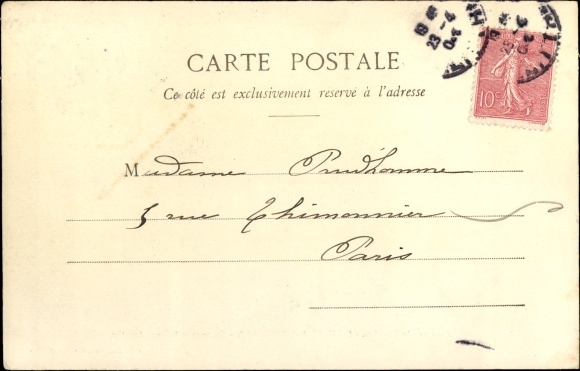 CARTE POSTALE
Ce côté est exclusivement reservé à l'adresse
10c
Madame Prudhomme
5 rue Thimonnier
Paris